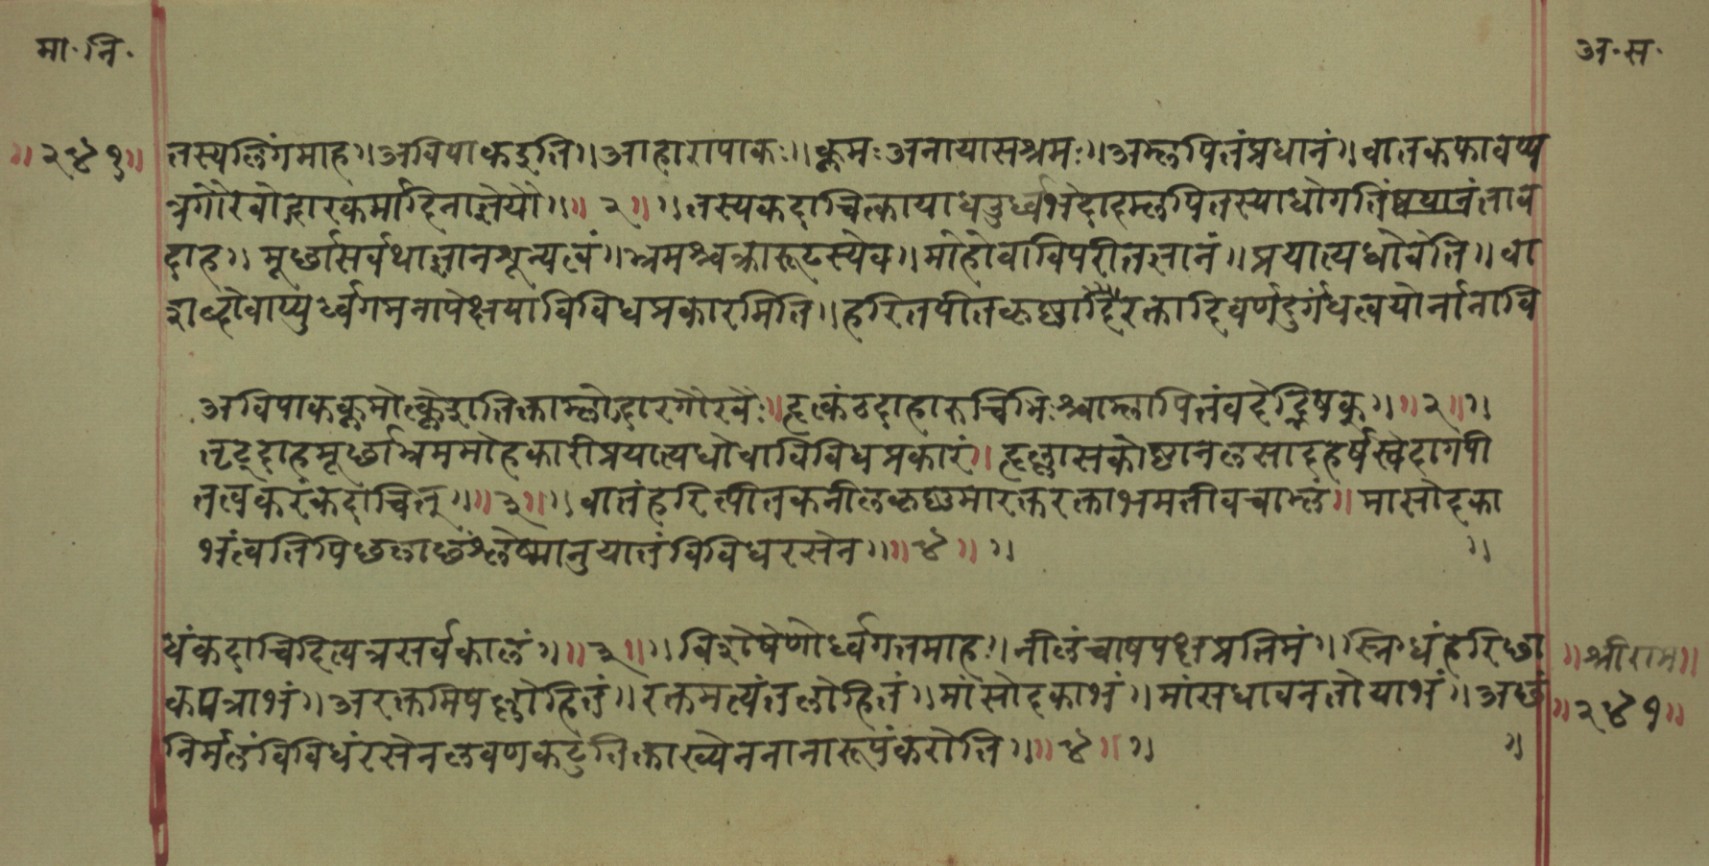 मा·नि·
अ·स·
॥२४१॥
तस्यलिंगमाह॥अविपाकइति॥आहारापाकः॥क्लमःअनायासश्रमः॥अम्लपितंप्रधानं॥वातकफावप्य
त्रगौरवोद्गारकर्मादिनाज्ञेयौ॥॥२॥॥तस्यकदाचित्कायाधउर्ध्वभेदादम्लपितस्याधोगतिंताव
दाह॥मूर्छासर्वथाज्ञानशून्यत्वं॥भ्रमश्चक्रारूढस्येव॥मोहोवाविपरीतज्ञानं॥प्रयात्यधोवेति॥वा
शब्दोवाप्युर्ध्वगमनापेक्षयाविविधप्रकारमिति॥हरितपीतकृष्णादैरक्तादिवर्णदुर्गंधत्वयोर्नानावि
अविपाकक्लमोत्क्लेशतिक्ताम्लोद्गारगौरवैः॥हृत्कंठदाहारुचिभिःश्चाम्लापितंवदेद्भिषक्॥॥२॥॥
तृट्दाहमूर्छाभ्रममोहकारीप्रयात्यधोवाविविधप्रकारं॥हृल्लासकोष्ठानलसादहर्षस्वेदांगपी
तत्वकरंकदाचित्॥॥३॥॥वातंहरित्पीतकनीलकृष्णमारक्तरक्ताभमतीवचाम्लं॥मासोदका
भंत्वतिपिछलाछंश्लेष्मानुयातंविविधरसेन॥॥४॥॥॥
धंकदाचिदित्यत्रसर्वकालं॥॥३॥॥विशेषेणोर्ध्वगतमाह॥नीलंचाषपक्षप्रतिमं॥स्निग्धंहरिछा
॥श्रीराम॥
कपत्राभं॥अरक्तमिषल्लोहितं॥रक्तमत्यंतलोहितं॥मांसोदकाभं॥मांसधावनतोयाभं॥अछं
॥२४१॥
निर्मलंविविधंरसेनलवणकटुतिक्ताख्येननानारूपंकरोति॥॥४॥॥॥